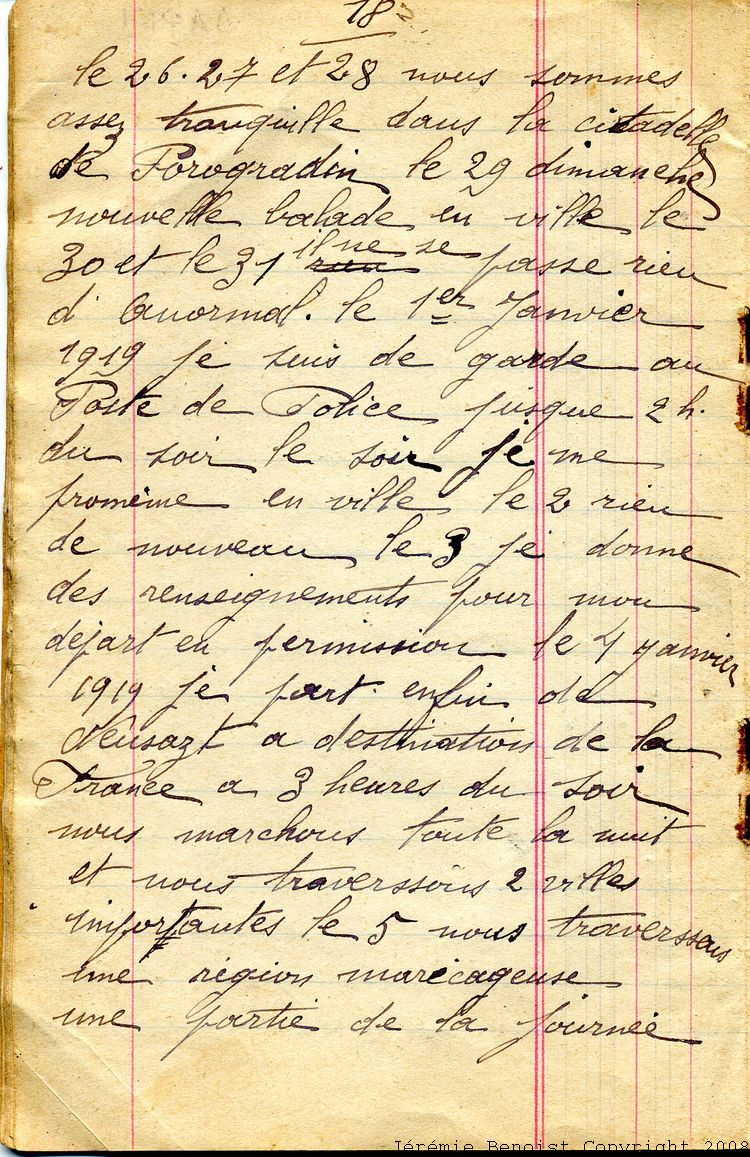 18
le 26. 27 et 28 nous sommes
assez tranquille dans la citadelle
de Porogradin le 29 dimanche
nouvelle balade en ville le
30 et le 31 il ne se passe rien
d'anormal. le 1er Janvier
1919 je suis de garde au
Poste de Police jusque 2 h.
du soir le soir je me
promème en ville le 2 rien
de nouveau le 3 je donne
des renseignements pour mon
départ en permission le 4 janvier
1919 je part enfin de
Neusazt a destination de la
France a 3 heures du soir
nous marchons toute la nuit
et nous traverssons 2 villes
importantes le 5 nous traverssons
une région marécageuse
une partie de la journée
Jérémie Benoist Copyright 2008